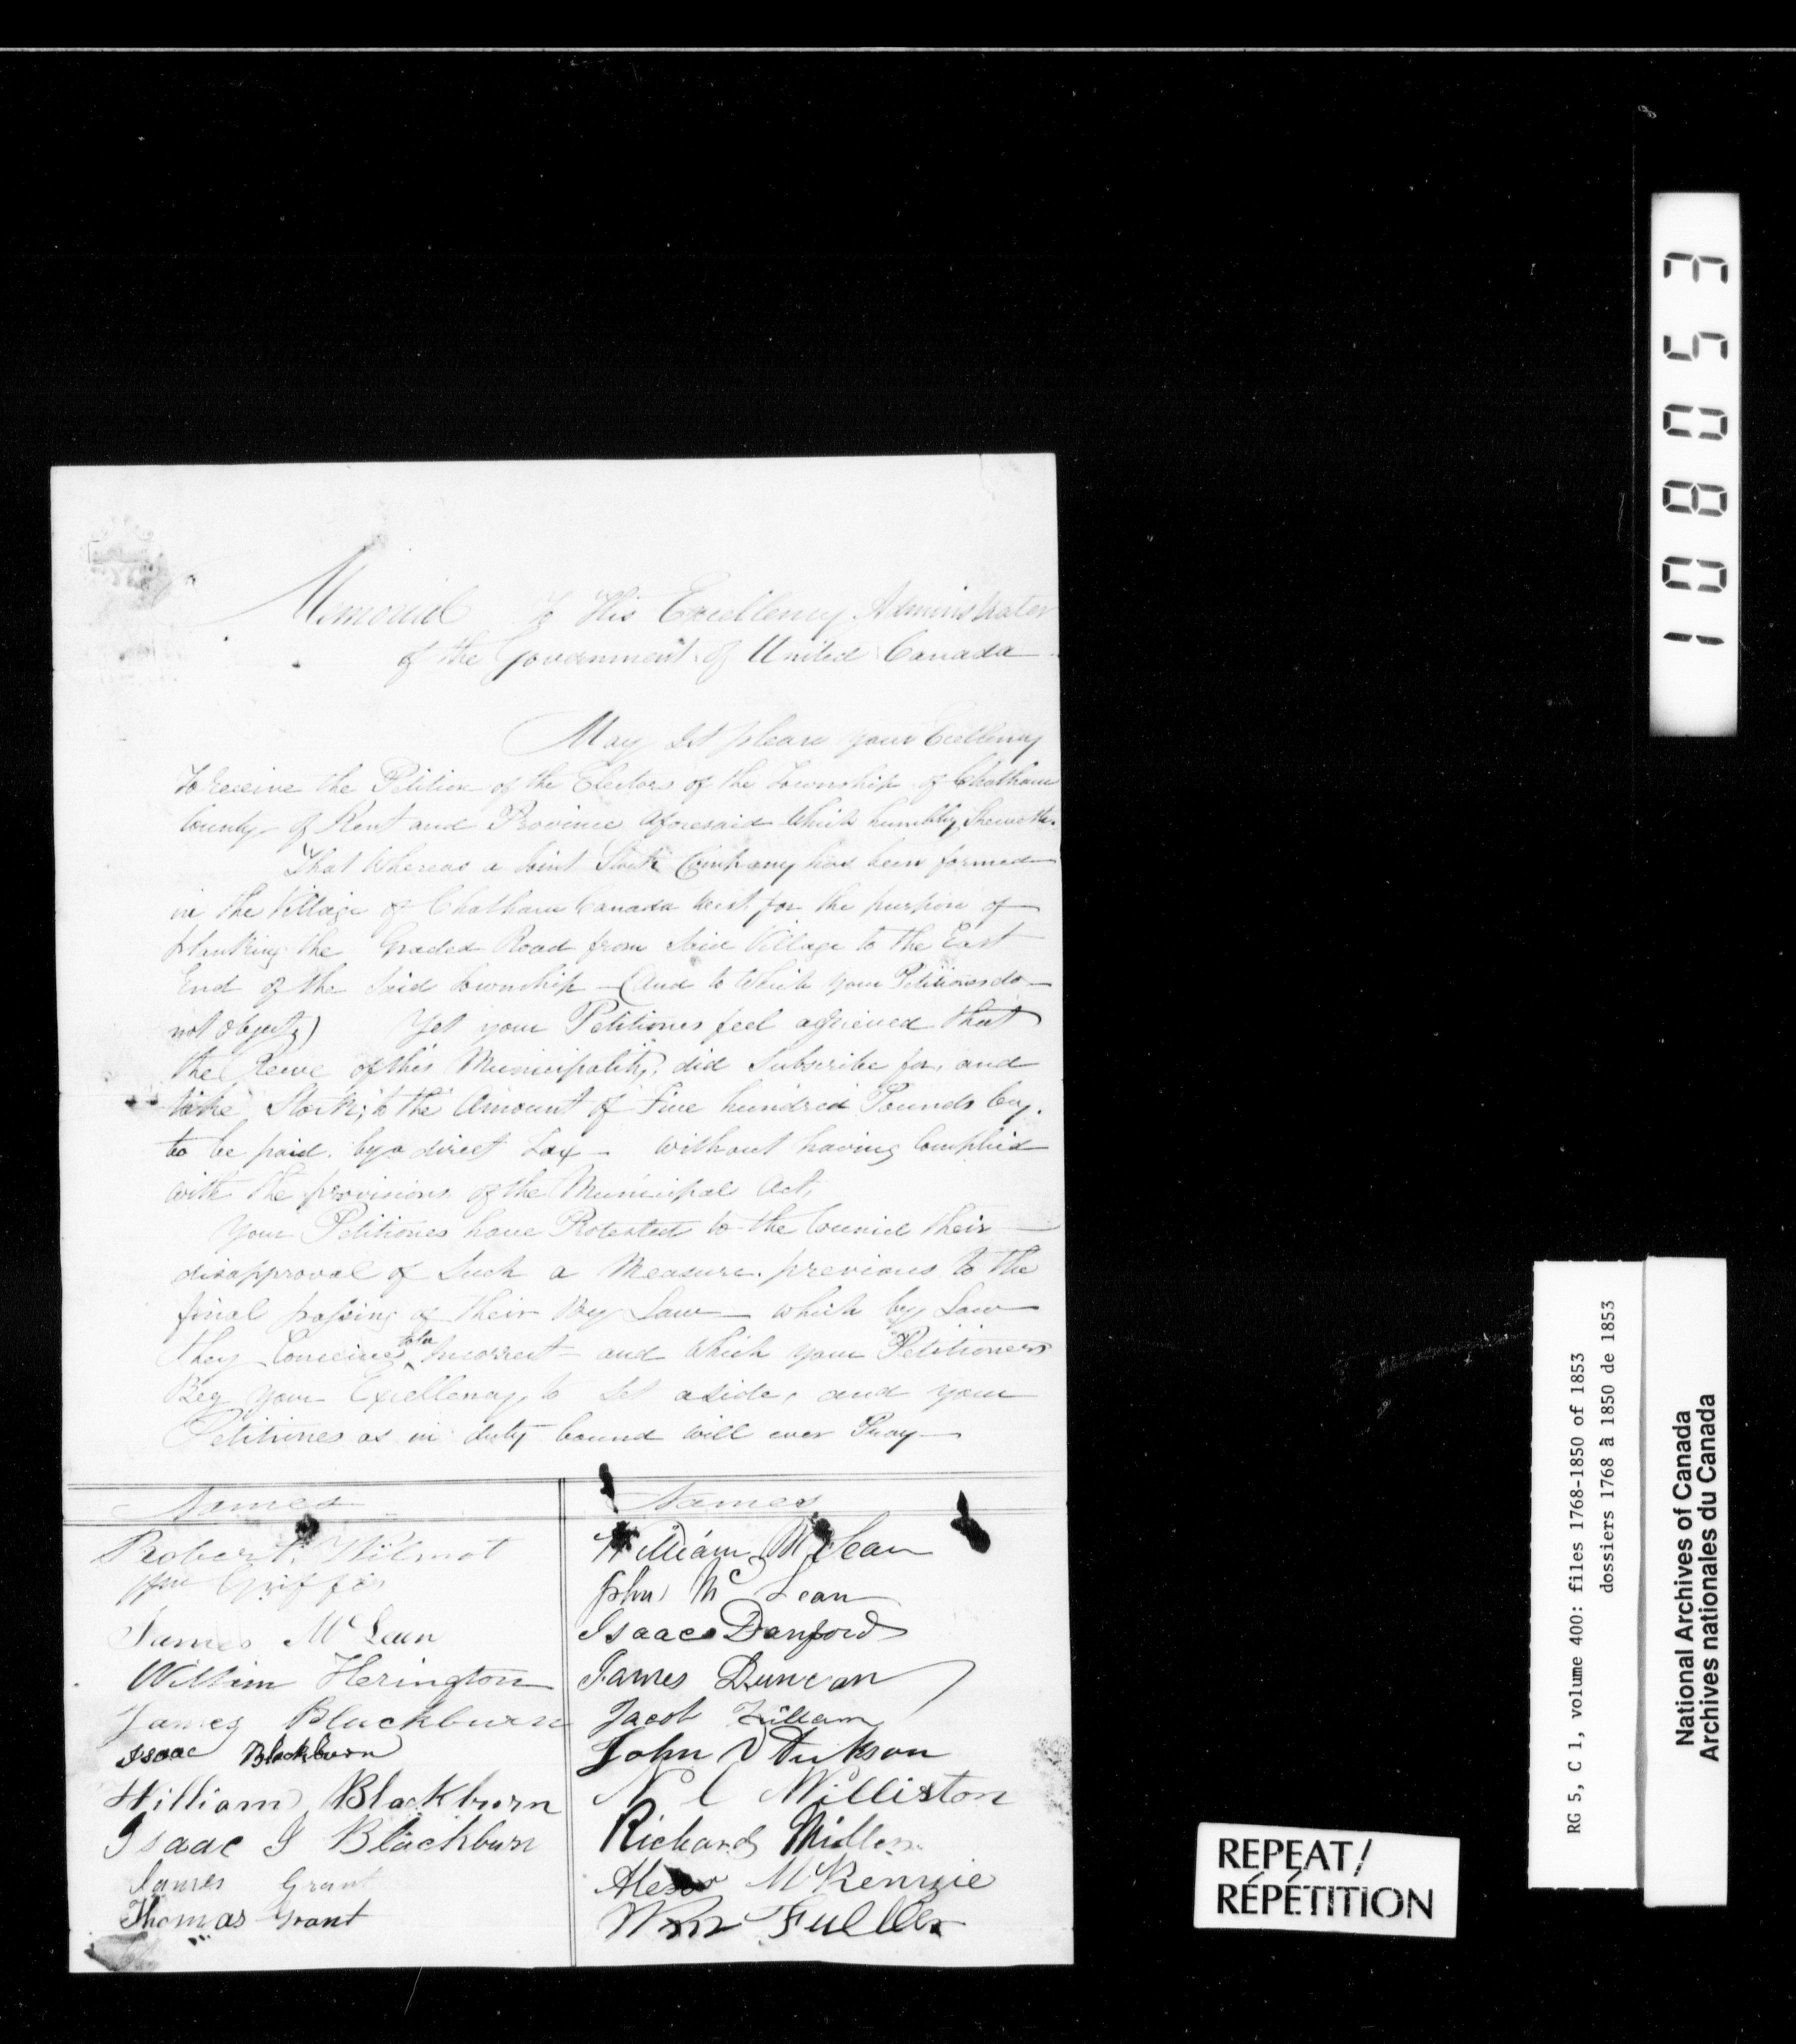 Memorial to His Excellency Administrator
of the Government of United Canada
May it please your Excellency
To receive the Petition of the Electors of the Township of Chatham
County of Kent and Province aforesaid Which humbly Sheweth.
That Whereas a Joint Stock Company has been formed
in the Village of Chatham Canada West for the purpose of
planking the Graded Road from Said Village to the East
End of the Said Township — (And to Which your Petitioners do —
not Object) Yet your Petitioners feel aggrieved that
the Reeve of this Municipality did Subscribe for, and
take Stock; to the Amount of Five hundred Pounds Cy.
to be paid by a direct Tax — without having Complied
with the provisions of the Municipal Act,
Your Petitioners have Protested to the Council their —
disapproval of Such a Measure previous to the
final passing of their By Law — which by Law
they Conceive to be Incorrect — and Which your Petitioners
Beg your Excellency to Set aside, and your
Petitiones as in duty bound will ever Pray —
Names Names
Robert Wilmot William McLean
Wm John Mc Lean
James McLean Isaac Danford
William Herington James Duncan
James Blackburn Jacob
Isaac Blackburn John
William Blackburn N C Williston
Isaac J Blackburn Richard Miller
James Grant Alexr McKenzie
Thomas Grant Wm Fuller
108053
REPEAT/
RÉPÉTITION
RG 5, C 1, volume 400: files 1768-1850 of 1853
dossiers 1768 à 1850 de 1853
National Archives of Canada
Archives nationales du Canada